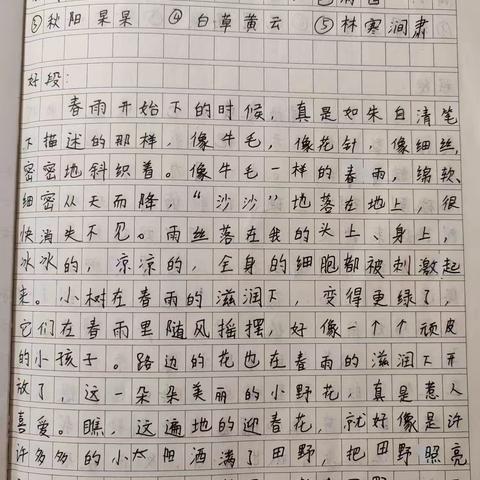 ③秋阳杲杲 ④白草黄云 ⑤林寒涧肃
好段:
春雨开始下的时候,真是如朱自清笔
下描述的那样,像牛毛,像花针,像细丝,
密密地斜织着。像牛毛一样的春雨,绵软、
细密从天而降,“沙沙”地落在地上,很
快消失不见。雨丝落在我的头上、身上,
冰冰的,凉凉的,全身的细胞都被刺激起
来。小树在春雨的滋润下,变得更绿了,
它们在春雨里随风摇摆,好像一个个顽皮
的小孩子。路边的花也在春雨的滋润下开
放了,这一朵朵美丽的小野花,真是惹人
喜爱。瞧,这遍地的迎春花,就好像是许
许多多的小太阳洒满了田野,把田野照亮